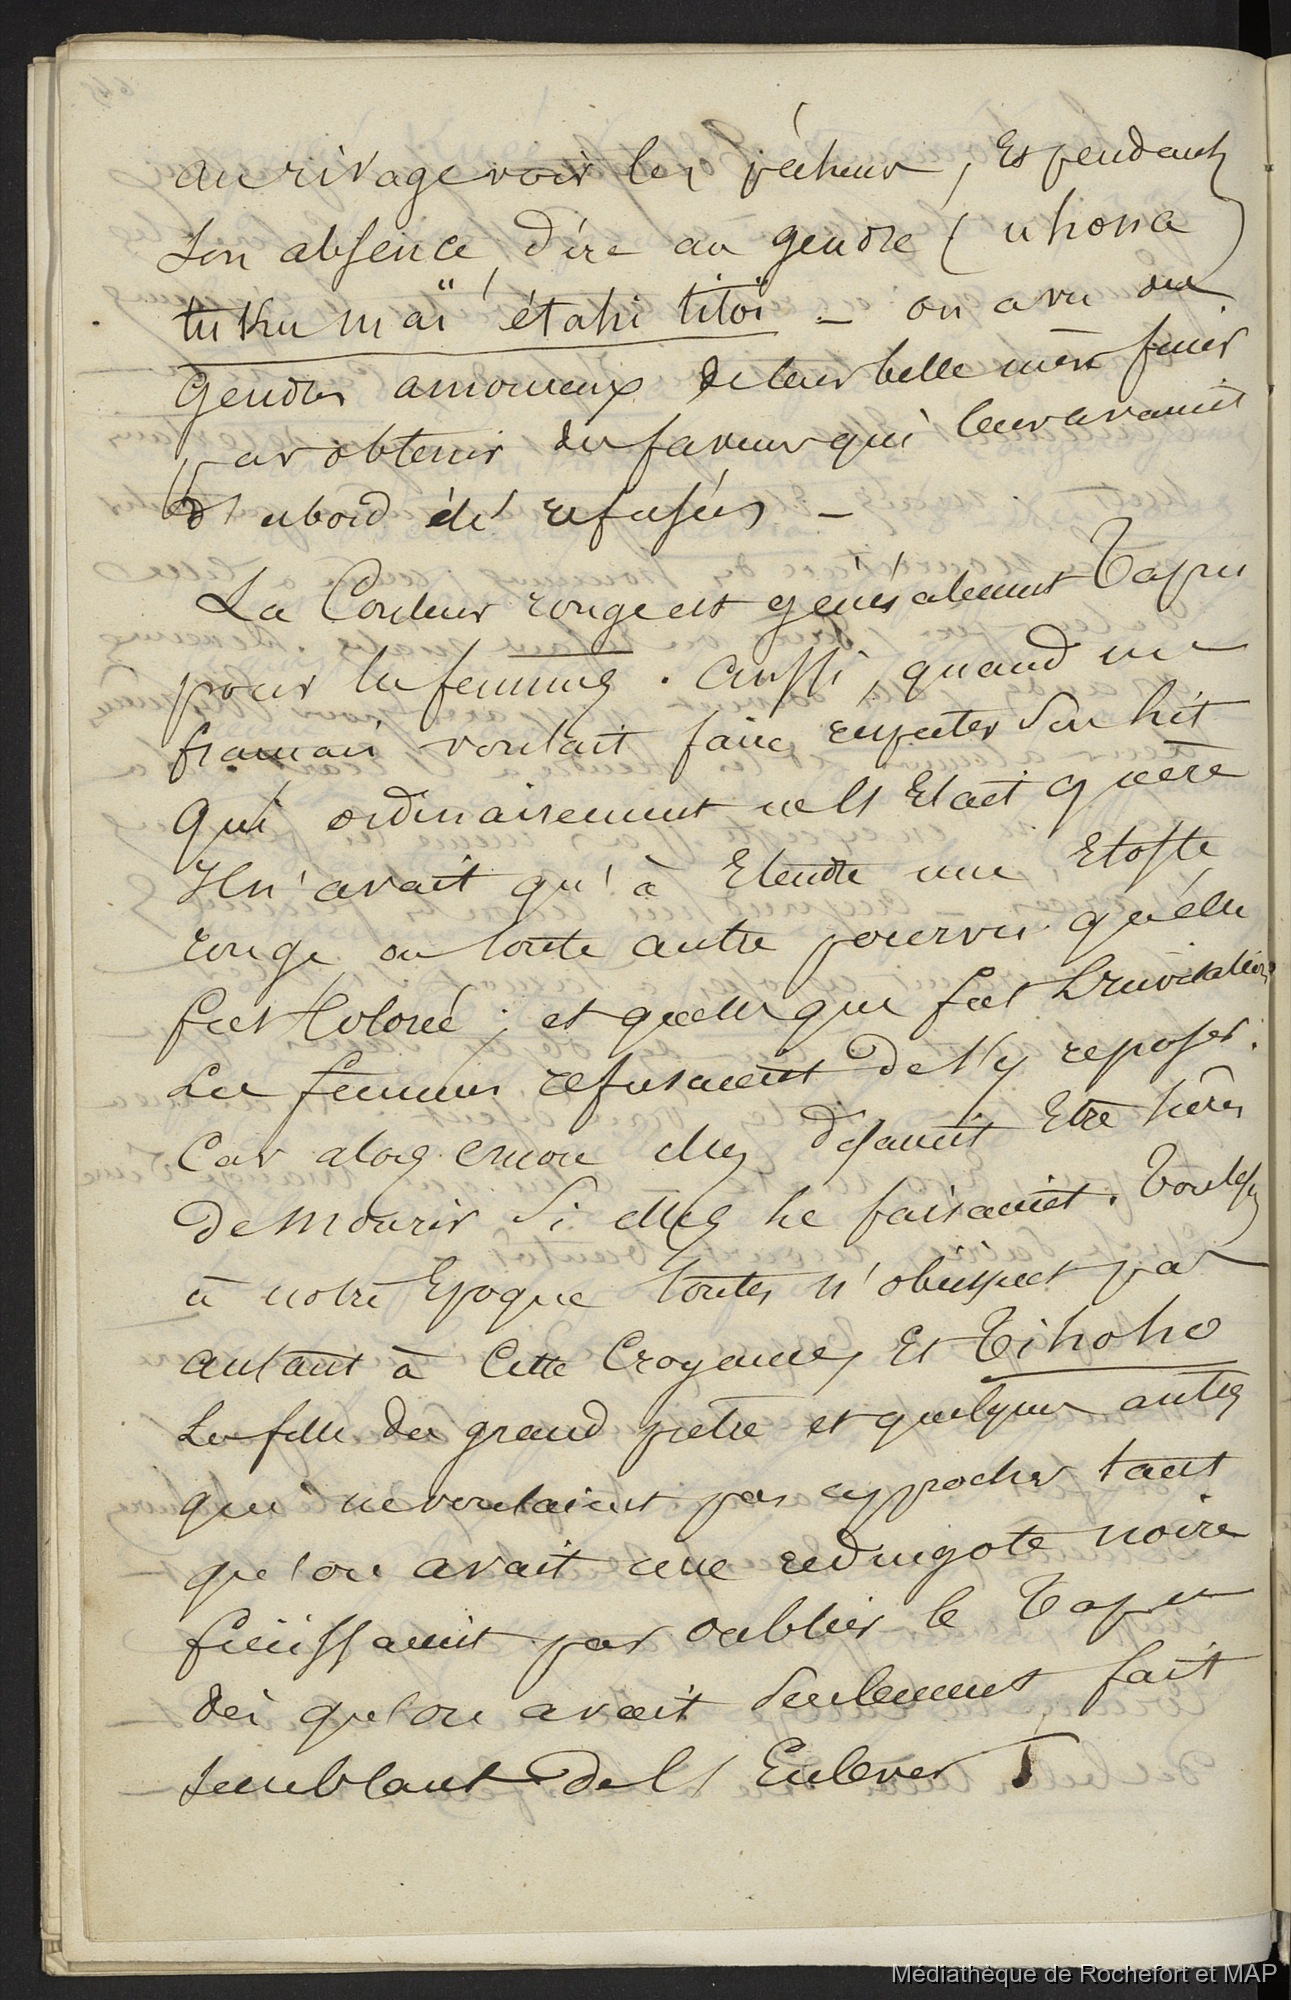 au rivage voir les pêcheurs, Et pendant
Son absence dire au gendre (uhona
tuku maï étahi titoi – on a vu des
Gendres amoureux de leur belle mère finir
par obtenir des faveurs qui leur avaient
d'abord été refusées –
La Couleur rouge est généralement Tapu
pour les femmes. aussi, quand un
français voulait faire respecter Son lit
qui ordinairement ne l'Etait guère
Il n'avait qu'à Etendre une Etoffe
rouge ou toute autre pourvu qu'elle
fut Colorée ; et quelle que fut L'invitation
Les femmes refusaient de s'y reposer.
Car alors elles disaient Etre sûres
de mourir Si elles le faisaient. Toutefois
à notre Epoque toutes n'obéissent pas
autant à Cette Croyance, Et Tihoho
La fille du grand prêtre et quelques autres
qui ne voulaient pas approcher tant
qu'on avait une redingote noire
finissaient par oublier le Tapu
dès qu'on avait Seulement fait
Semblant de l' Enlever
Médiathèque de Rochefort et MAP